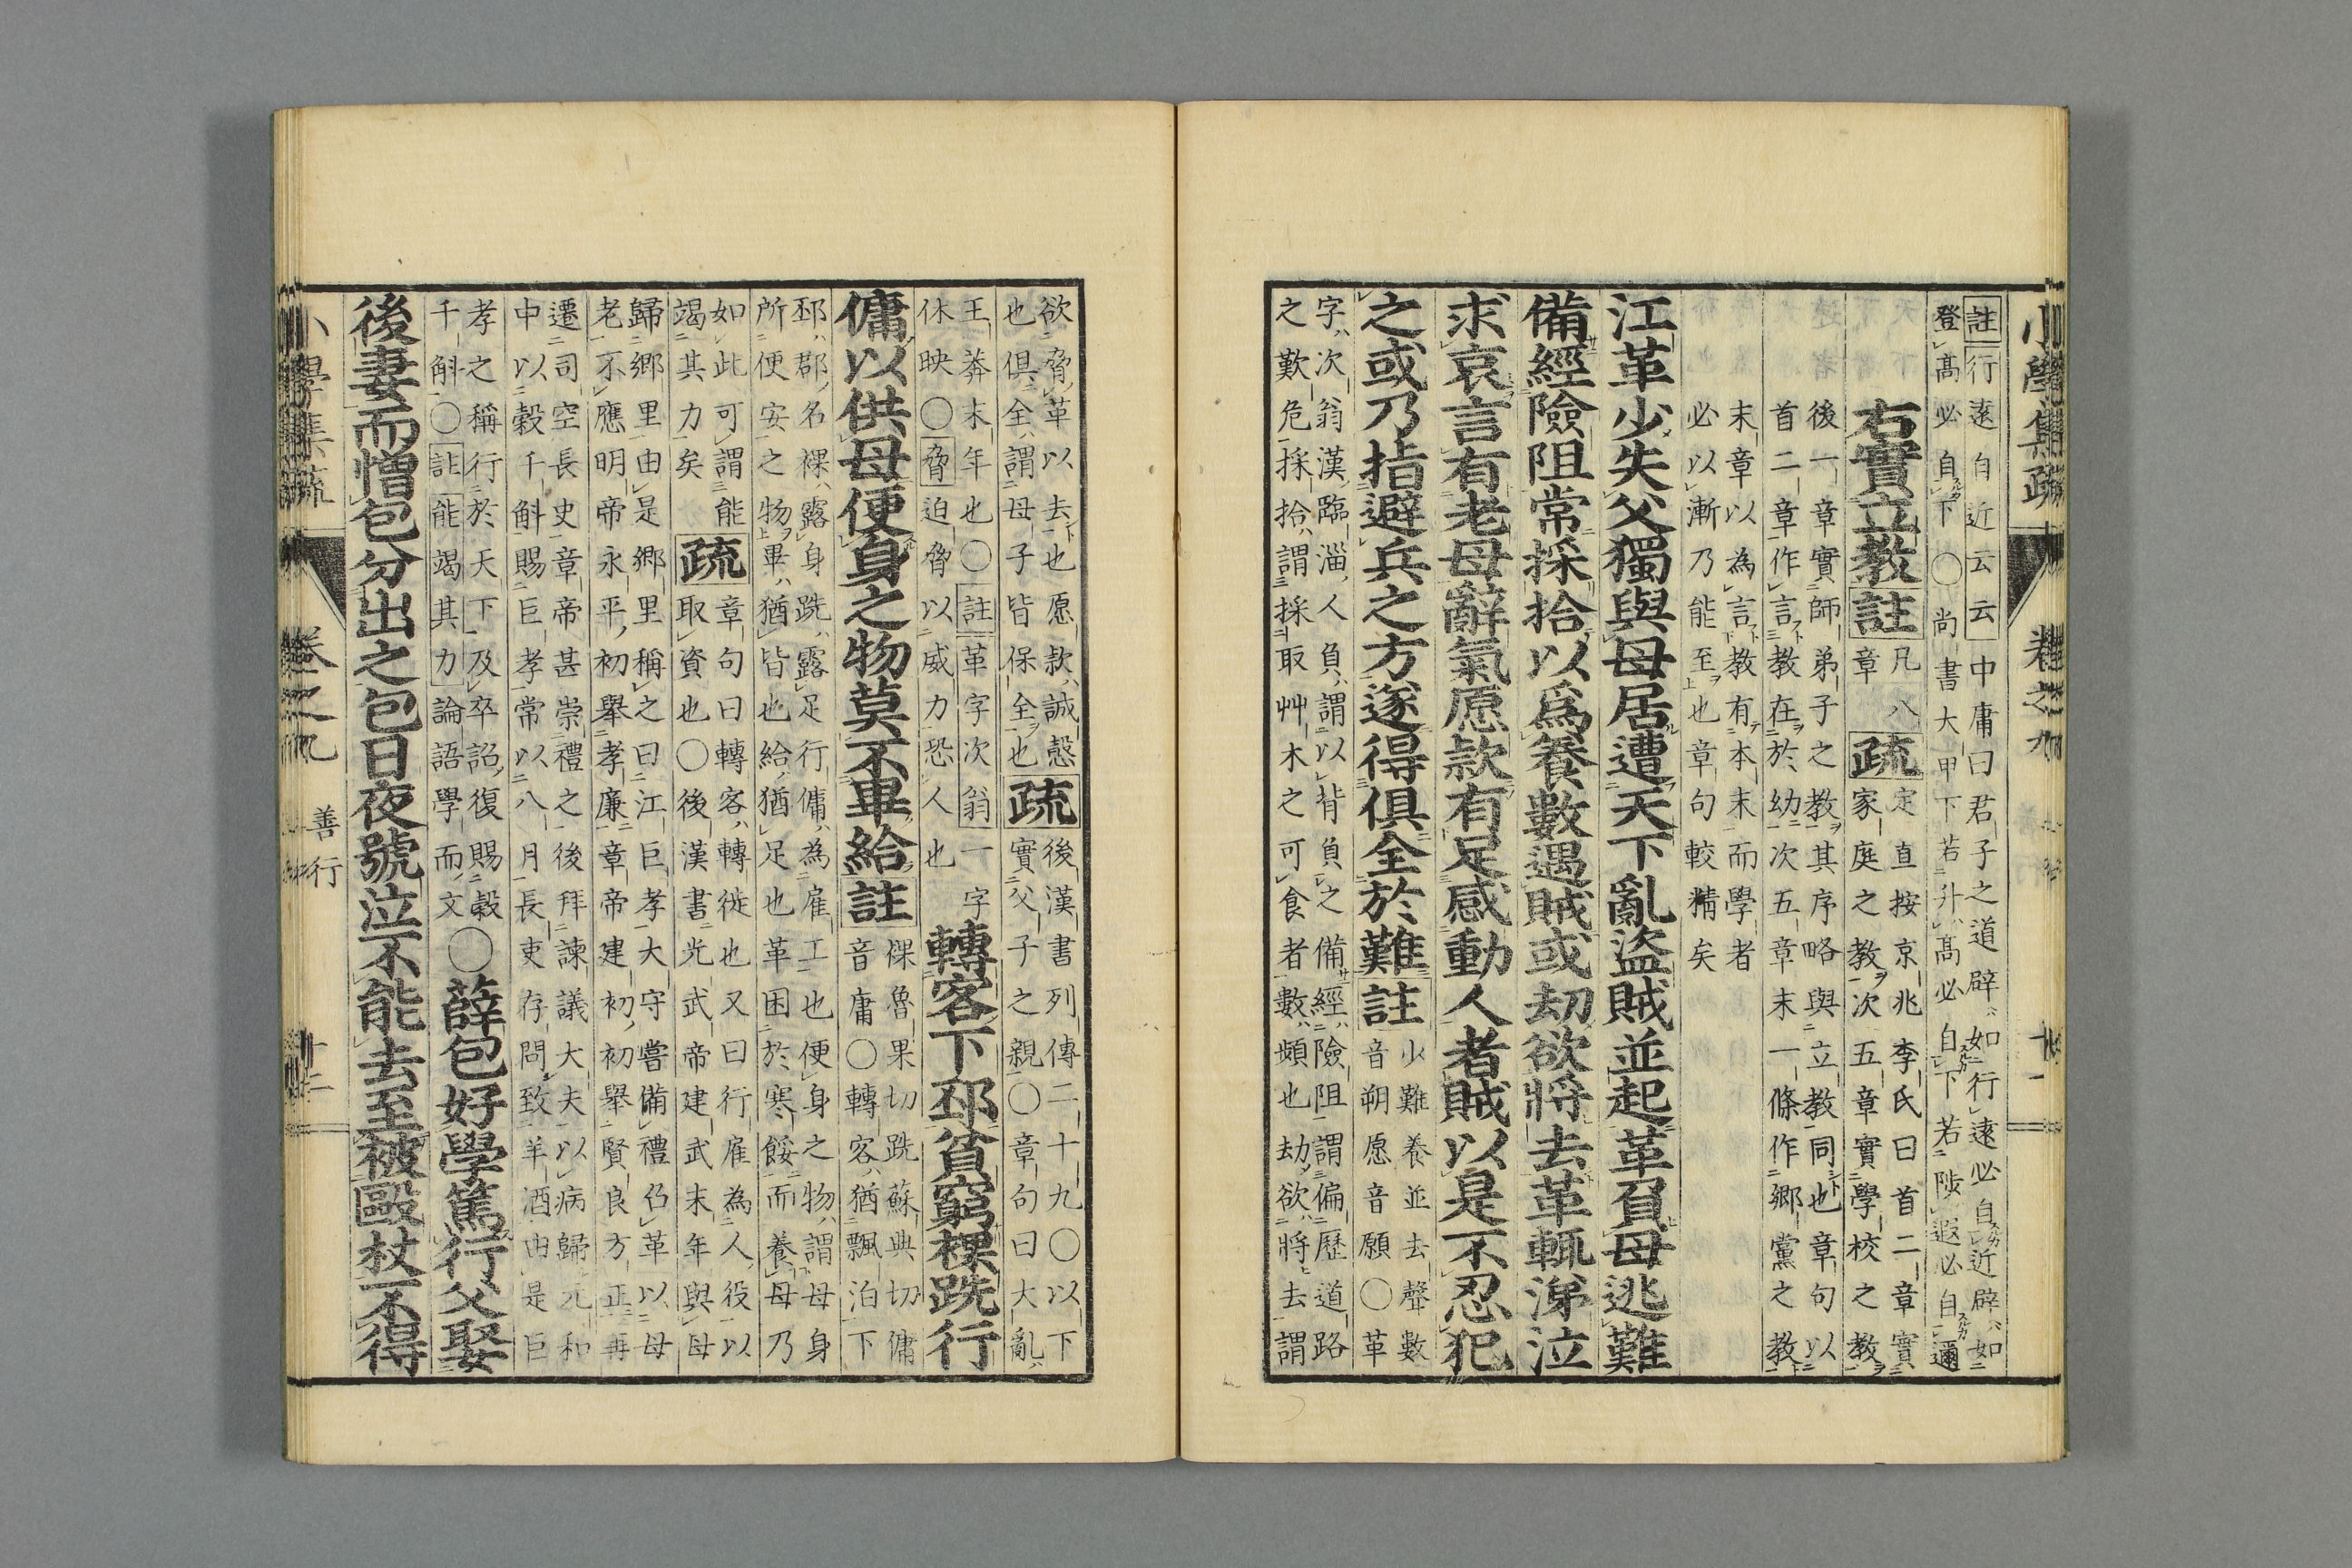 小學集疏
卷之九
十一
註行遠自近云云中庸曰君子之道辟如行遠必自近辟如
登高必自下〇尚書大甲下若升高必自下若陟遐必自邇
右實立教註凡八
章疏定直按京兆李氏曰首二章實
家庭之教次五章實學校之教
後一章實師弟子之教其序略與立教同也章句以
首二章作言教在於幼次五章末一條作鄉黨之教
末章以為言教有本末而學者
必以漸乃能至也章句較精矣
江革少失父獨與母居遭天下亂盜賊並起革負母逃難
備經險阻常採拾以爲養數遇賊或劫欲將去革輒涕泣
求哀言有老母辭氣愿款有足感動人者賊以是不忍犯
之或乃指避兵之方遂得俱全於難註
少難養並去聲數
音朔愿音願〇革
字次翁漢臨淄人負謂以背負之備經險阻謂偏歷道路
之歎危採拾謂採取艸木之可食者數頻也劫欲將去謂
欲脅革以去也愿款誠慤
也俱全謂母子皆保全也疏後漢書列傳二十九〇以下
實父子之親〇章句曰大亂
王莽末年也〇註革字次翁一字
休映〇脅迫脅以威力恐人也
轉客下邳貧窮裸跣行
傭以供母便身之物莫不畢給註
裸魯果切跣蘇典切傭
音庸〇轉客猶飄泊下
邳郡名裸露身跣露足行傭為雇工也便身之物謂母身
所便安之物畢猶皆也給猶足也革困於寒餒而養母乃
如此可謂能
竭其力矣疏章句曰轉客轉徙也又曰行雇為人役以
取資也〇後漢書光武帝建武末年與母
歸鄉里由是鄉里稱之曰江巨孝大守嘗備禮召革以母
老不應明帝永平初舉孝廉章帝建初初舉賢良方正再
遷司空長史章帝甚崇禮之後拜諫議大夫以病歸元和
中以穀千斛賜巨孝常以八月長吏存問致羊酒由是巨
孝之稱行於天下及卒詔復賜穀
千斛〇註能竭其力論語學而文
〇薛包好學篤行父娶
後妻而憎包分出之包日夜號泣不能去至被毆杖不得
小學集疏
卷之九
善行
十二